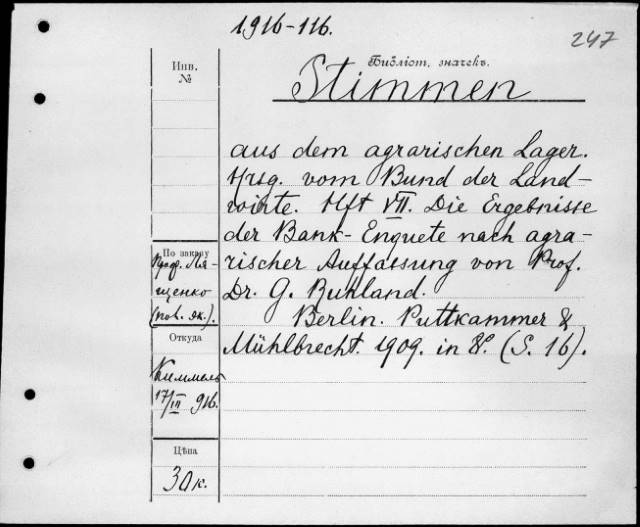 1916-116.
247
Инв.
№
Библіот. значекъ.
Stimmen
aus dem agrarischen Lager.
Hrsg. vom Bund der Land-
wirte. Hft VII. Die Ergebnisse
der Bank-Enquete nach agra-
rischer Auffassung von Prof.
Dr. G. Ruhland.
Berlin. Puttkammer &
Mühlbrecht. 1909. in 8º. (S. 16).
По заказу
Проф. Ля-
щенко
(пол. эк.).
Откуда
Киммель
17/III 916.
Цѣна
30 к.